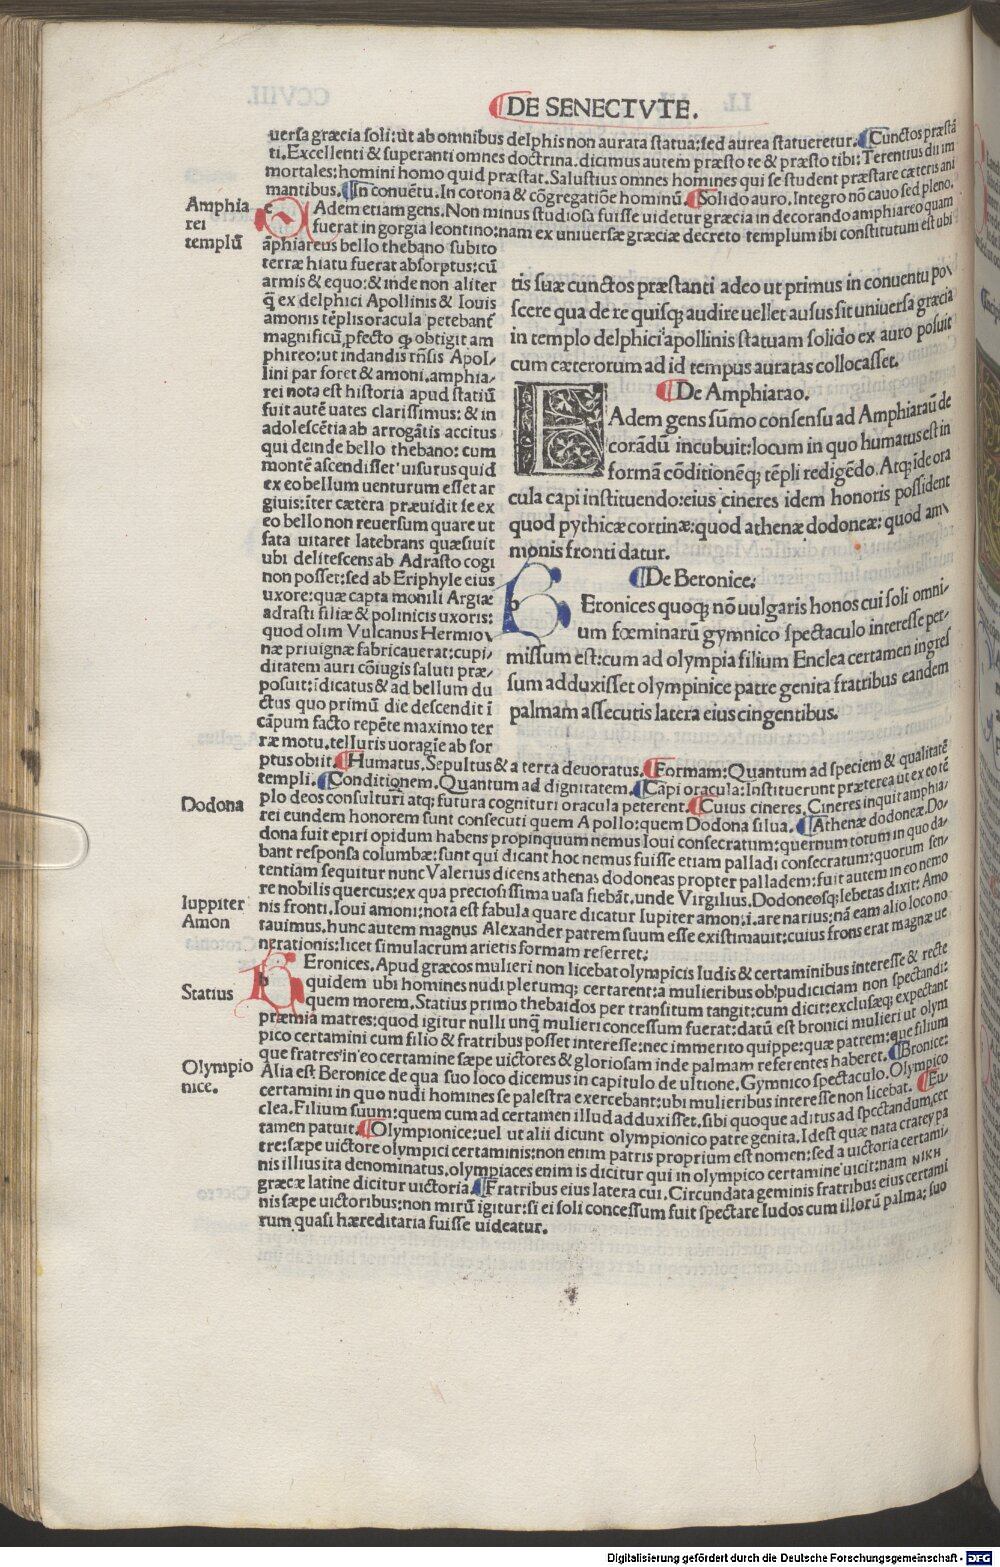 DE SENECTVTE.
uersa græcia soli: ut ab omnibus delphis non aurata statua: sed aurea statueretur. Cunctos præstã
ti. Excellenti & superanti omnes doctrina. dicimus autem præsto te & præsto tibi: Terentius dii im
mortales: homini homo quid præstat. Salustius omnes homines qui se student præstare cæteris ani
mantibus. In conuẽtu. In corona & cõgregatiõe hominũ. Solido auro. Integro nõ cauo sed pleno.
Amphia
rei
templũ
e
Adem etiam gens. Non minus studiosa fuisse uidetur græcia in decorando amphiareo quam
fuerat in gorgia leontino: nam ex uniuersæ græciæ decreto templum ibi constitutum est ubi
ãphiareus bello thebano subito
terræ hiatu fuerat absorptus: cũ
armis & equo: & inde non aliter
q̃ ex delphici Apollinis & Iouis
amonis tẽplis oracula petebant̃
magnificũ, pfecto ꝙ obtigit am
phireo: ut indandis rñsis Apol/
lini par foret & amoni. amphia/
rei nota est historia apud statiũ
fuit autẽ uates clarissimus: & in
adolescẽtia ab arrogãtis accitus
qui deinde bello thebano: cum
montẽ ascendisset uisurus quid
ex eo bellum uenturum esset ar
giuis: iter cætera præuidit se ex
eo bello non reuersum quare ut
fata uitaret latebrans quæsiuit
ubi delitescens ab Adrasto cogi
non posset: sed ab Eriphyle eius
uxore: quæ capta monili Argiæ
adrasti filiæ & polinicis uxoris:
quod olim Vulcanus Hermio\
næ priuignæ fabricauerat: cupi/
ditatem auri cõiugis saluti præ/
posuit: idicatus & ad bellum du
ctus quo primũ die descendit ĩ
cãpum facto repẽte maximo ter
ræ motu. telluris uoragĩe ab sor
tis suæ cunctos præstanti adeo ut primus in conuentu po\
scere qua de re quisq; audire uellet ausus sit uniuersa græcia
in templo delphici apollinis statuam solido ex auro posuit
cum cæterorum ad id tempus auratas collocasset.
De Amphiarao.
EAdem gens sũmo consensu ad Amphiaraũ de
corãdũ incubuit: locum in quo humatus est in
formã cõditionẽq; tẽpli redigẽdo. Atq; ide ora
cula capi instituendo: eius cineres idem honoris possident
quod pythicæ cortinæ: quod athenæ dodoneæ: quod am\
monis fronti datur.
De Beronice.
b
Eronices quoq; nõ uulgaris honos cui soli omni/
um fœminarũ gymnico spectaculo interesse per/
missum est: cum ad olympia filium Enclea certamen ingres
sum adduxisset olympinice patre genita fratribus eandem
palmam assecutis latera eius cingentibus.
ptus obiit. Humatus. Sepultus & a terra deuoratus. Formam: Quantum ad speciem & qualitatẽ
templi. Conditionem. Quantum ad dignitatem. Capi oracula: Instituerunt præterea ut ex eo tẽ
Dodona
plo deos consulturi atq; futura cognituri oracula peterent. Cuius cineres. Cineres inquit amphia/
rei eundem honorem sunt consecuti quem Apollo: quem Dodona silua. Athenæ dodoneæ. Do/
dona fuit epiri opidum habens propinquum nemus Ioui consecratum: quernum totum in quo da/
bant responsa columbæ: sunt qui dicant hoc nemus fuisse etiam palladi consecratum: quorum sen/
tentiam sequitur nunc Valerius dicens athenas dodoneas propter palladem: fuit autem in eo nemo
re nobilis quercus: ex qua preciosissima uasa fiebãt. unde Virgilius. Dodoneosq; lebetas dixit: Amo
Iuppiter
Amon
nis fronti. Ioui amoni: nota est fabula quare dicatur Iupiter amon: i. arenarius: nã eam alio loco no
tauimus. hunc autem magnus Alexander patrem suum esse existimauit: cuius frons erat magnæ ue
nerationis: licet simulacrum arietis formam referret:
b
Eronices. Apud græcos mulieri non licebat olympicis ludis & certaminibus interesse & recte
quidem ubi homines nudi plerumq; certarent: a mulieribus ob pudiciciam non spectandi:
Statius
quem morem. Statius primo thebaidos per transitum tangit: cum dicit: exclusæq; expectant
præmia matres: quod igitur nulli unq̃ mulieri concessum fuerat: datũ est bronici mulieri ut olym
pico certamini cum filio & fratribus posset interesse: nec immerito quippe: quæ patrem: que filium
que fratres in eo certamine sæpe uictores & gloriosam inde palmam referentes haberet. Bronice:
Olympio
nice.
Alia est Beronice de qua suo loco dicemus in capitulo de ultione. Gymnico spectaculo. Olympico
certamini in quo nudi homines se palestra exercebant: ubi mulieribus interesse non licebat. Eu/
clea. Filium suum: quem cum ad certamen illud adduxisset. sibi quoque aditus ad spectandum, cer
tamen patuit. Olympionice: uel ut alii dicunt olympionico patre genita. Id est quæ nata cratey pa
tre: sæpe uictore olympici certaminis: non enim patris proprium est nomen: sed a uictoria certami/
nis illius ita denominatus. olympiaces enim is dicitur qui in olympico certamine uicit: nam ΝΙΚΗ
græcæ latine dicitur uictoria. Fratribus eius latera cui. Circundata geminis fratribus eius certami
nis sæpe uictoribus: non mirũ igitur: si ei soli concessum fuit spectare ludos cum illorũ palma: suo
rum quasi hæreditaria fuisse uideatur.
Digitalisierung gefördert durch die Deutsche Forschungsgemeinschaft - DFG